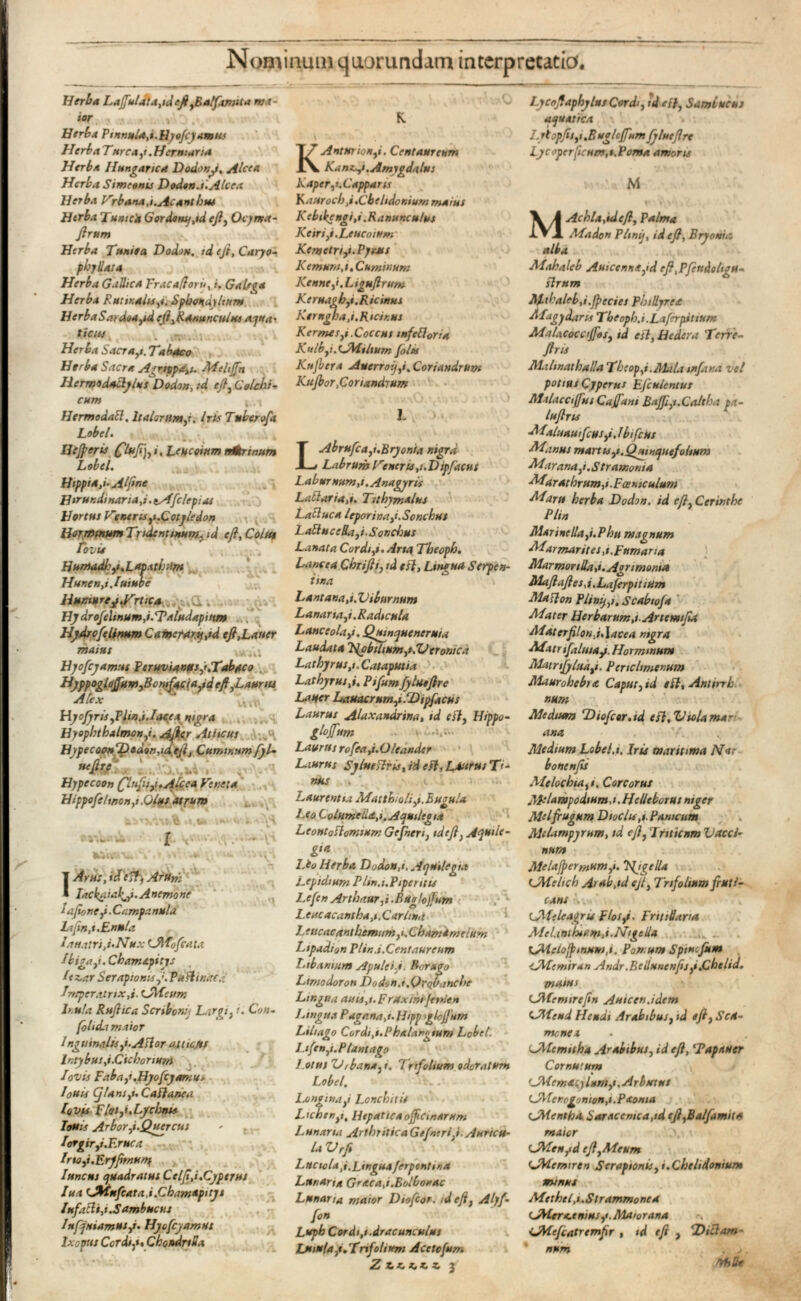 Nominum quorundam interpretatio.
Herba Lassulata, id est, Balsamita ma-
ior
Herba Pinnula, i. Hyoscyamus
Herba Turca, i. Herniaria
Herba Hungarica Dodon, i. Alcea
Herba Simeonis Dodon. i. Alcea
Herba Vrbana, i. Acanthus
Herba Tunica Gordonij, id est, Ocyma-
strum
Herba Tunica Dodon. id est, Caryo-
phyllata
Herba Gallica Fracastorij, i. Galega
Herba Rutinalis, i. Sphondylium
Herba Sardoa, id est, Ranunculus aqua-
ticus
Herba Sacra, i. Tabaco
Herba Sacra Agrippæ, i. Melissa
Hermodactylus Dodon, id est, Colchi-
cum
Hermodact. Italorum, i. Iris Tuberosa
Lobel.
Hesperis Clusij, i. Leucoium marinum
Lobel.
Hippia, i. Alsine
Hirundinaria, i. Asclepias
Hortus Veneris, i. Cotyledon
Horminum Tridentinum, id est, Colus
Iovis
Humadh, i. Lapathum
Hunen, i. Iuiube
Humure, i. Vrtica
Hydroselinum, i. Paludapium
Hydroselinum Camerarij, id est, Lauer
maius
Hyoscyamus Peruvianus, i. Tabaco
Hyppoglossum, Bonifacia, id est, Laurus
Alex
Hyosyris, Plin, i. Iacea nigra
Hyophthalmon, i. Aster Atticus
Hypecoon Dodon. id est, Cuminum syl-
uestre
Hypecoon Clusii, i. Alcea Veneta
Hipposelinon, i. Olus atrum
I
IArus, id est, Arum
Iackaiak, i. Anemone
Iasione, i. Campanula
Iasin, i. Enula
Iauatri, i. Nux Moscata
Ibiga, i. Chamæpitys
Iezar Serapionis, i. Pastinaca
Imperatrix, i. Meum
Inula Rustica Scribonij Largi, i. Con-
solida maior
Inguinalis, i. Astor atticus
Intybus, i. Cichorium
Iovis Faba, i. Hyoscyamus
Iouis Glans, i. Castanea
Iovis Flos, i. Lychnis
Iouis Arbor, i. Quercus
Iorgir, i. Eruca
Irio, i. Erysimum
Iuncus quadratus Celsi, i. Cyperus
Iua Muscata, i. Chamæpitys
Iusacti, i. Sambucus
Iusquiamus, i. Hyoscyamus
Ixopus Cordi, i. Chondrilla
K
KAnturion, i. Centaureum
Kanz, i. Amygdalus
Kaper, i. Capparis
Kauroch, i. Chelidonium maius
Kebikengi, i. Ranunculus
Keiri, i. Leucoium
Kemetri, i. Pyrus
Kemum, i. Cuminum
Kenne, i. Ligustrum
Keruagh, i. Ricinus
Kerngha, i. Ricinus
Kermes, i. Coccus infectoria
Kulb, i. Milium solis
Kusbera Auerroij, i. Coriandrum
Kusbor, Coriandrum
L
LAbrusca, i. Bryonia nigra
Labrum Veneris, i. Dipsacus
Laburnum, i. Anagyris
Lactaria, i. Tithymalus
Lactuca leporina, i. Sonchus
Lactucella, i. Sonchus
Lanata Cordi, i. Aria Theoph.
Lancea Christi, id est, Lingua Serpen-
tina
Lantana, i. Viburnum
Lanaria, i. Radicula
Lanceola, i. Quinqueneruia
Laudata Nobilium, i. Veronica
Lathyrus, i. Cataputia
Lathyrus, i. Pisum syluestre
Lauer Lauacrum, i. Dipsacus
Laurus Alaxandrina, id est, Hippo-
glossum
Laurus rosea, i. Oleander
Laurus Syluestris, id est, Laurus Ti-
nus
Laurentia Matthioli, i. Bugula
Leo Columellæ, i. Aquilegia
Leontostomium Gesneri, id est, Aquile-
gia
Leo Herba Dodon, i. Aquilegia
Lepidium Plin. i. Piperitis
Lesen Arthaur, i. Buglossum
Leucacantha, i. Carlina
Leucacanthemum, i. Chamæmelum
Lipadion Plin. i. Centaureum
Libanium Apulei, i. Borago
Limodoron Dodon, i. Orobanche
Lingua auis, i. Fraxini semen
Lingua Pagana, i. Hippoglossum
Liliago Cordi, i. Phalangium Lobel.
Lisen, i. Plantago
Lotus Vrbana, i. Trifolium odoratum
Lobel.
Longina, i Lonchitis
Lichen, i, Hepatica officinarum
Lunaria Arthritica Gesneri, i. Auricu-
la Vrsi
Luciola, i. Lingua serpentina
Lunaria Græca, i. Bolbonac
Lunaria maior Dioscor. id est, Alys-
son
Luph Cordi, i. dracunculus
Luiula, i. Trifolium Acetosum
Lycostaphylus Cordi, id est, Sambucus
aquatica
Lykopsis, i. Buglossum syluestre
Lycopersicum, i. Poma amoris
M
MAchla, id est, Palma
Madon Plinij, id est, Bryonia
alba
Mahaleb Auicennæ, id est, Pseudoligu-
strum
Mahaleb, i. species Phillyreæ
Magydaris Theoph. i. Laserpitium
Malacoccissos, id est, Hedera Terre-
stris
Malinathalla Theop, i. Mala insana vel
potius Cyperus Esculentus
Malaccissus Cassani Bassi, i. Caltha pa-
lustris
Maluauiscus, i. Ibiscus
Manus martis, i. Quinquefolium
Marana, i. Stramonia
Marathrum, i. Fœniculum
Maru herba Dodon. id est, Cerinthe
Plin
Marinella, i. Phu magnum
Marmarites, i. Fumaria
Marmorilla, i. Agrimonia
Mastastes, i. Laserpitium
Maston Plinij, i, Scabiosa
Mater Herbarum, i. Artemisia
Materfilon, i. Iacea nigra
Matrisaluia, i. Horminum
Matrisylua, i. Periclimenum
Maurohebræ Caput, id est, Antirrhi-
num
Medium Dioscor. id est, Viola mari-
ana
Medium Lobel. i. Iris maritima Nar-
bonensis
Melochia, i. Corcorus
Melampodium, i. Helleborus niger
Melfrugum Dioclis, i. Panicum
Melampyrum, id est, Triticum Vacci-
num
Melaspermum, i. Nigella
Melich Arab, id est, Trifolium fruti-
cans
Meleagris Flos, i. Fritillaria
Melanthium, i. Nigella
Melospinum, i. Pomum Spinosum
Memiran Andr. Bellunensis, i. Chelid.
maius
Memiresin Auicen. idem
Mend Hendi Arabibus, id est, Sca-
monea
Memitha Arabibus, id est, Papauer
Cornutum
Memæcylum, i. Arbutus
Menogonion, i. Pæonia
Mentha Saracenica, id est, Balsamita
maior
Men, id est, Meum
Memiren Serapionis, i. Chelidonium
minus
Methel, i. Strammonea
Merzenius, i. Maiorana
Mescatremsir, id est, Dictam-
num
Z z z z z z 3
Mille